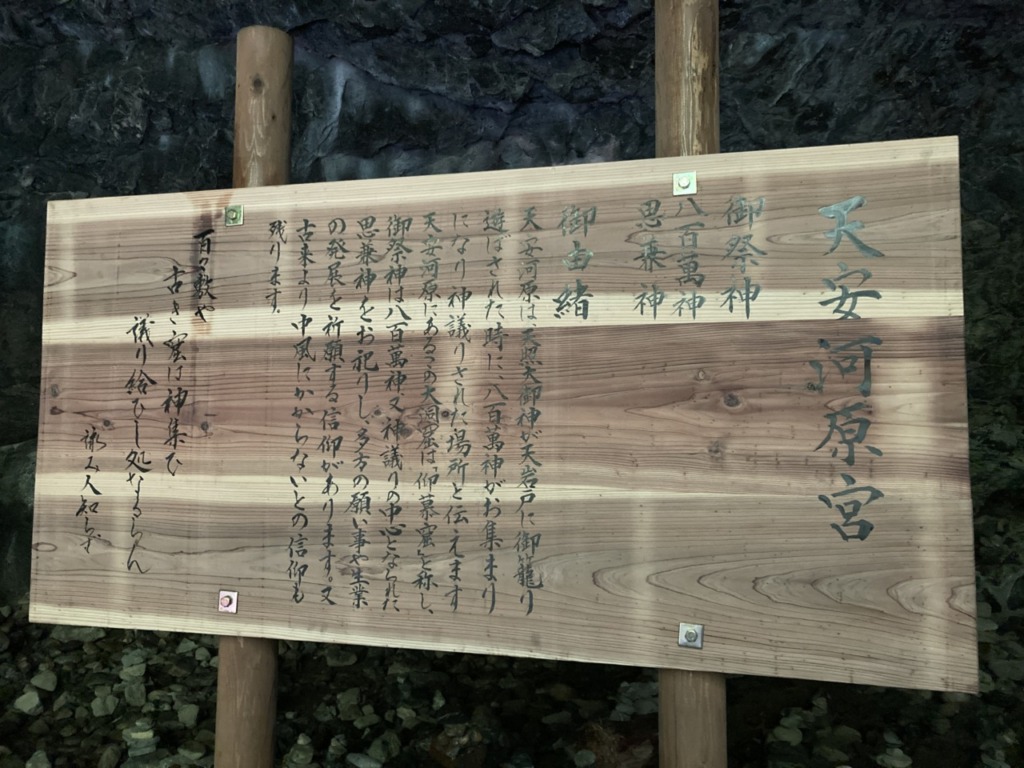 天安河原宮
御祭神
八百萬神
思兼神
御由緒
天安河原は、天照大御神が天岩戸に御籠り
遊ばされた時に、八百萬神がお集まり
になり神議りされた場所と伝えます
天安河原にあるこの大洞窟は、仰慕窟と称し、
御祭神は八百萬神又神議りの中心となられた
思兼神をお祀りし、多方の願い事や生業
の発展を祈願する信仰があります。又
古来より中風にかからないとの信仰も
残ります。
百々敷や
古き窟は神集ひ
議り給ひし処なるらん
詠み人知らず